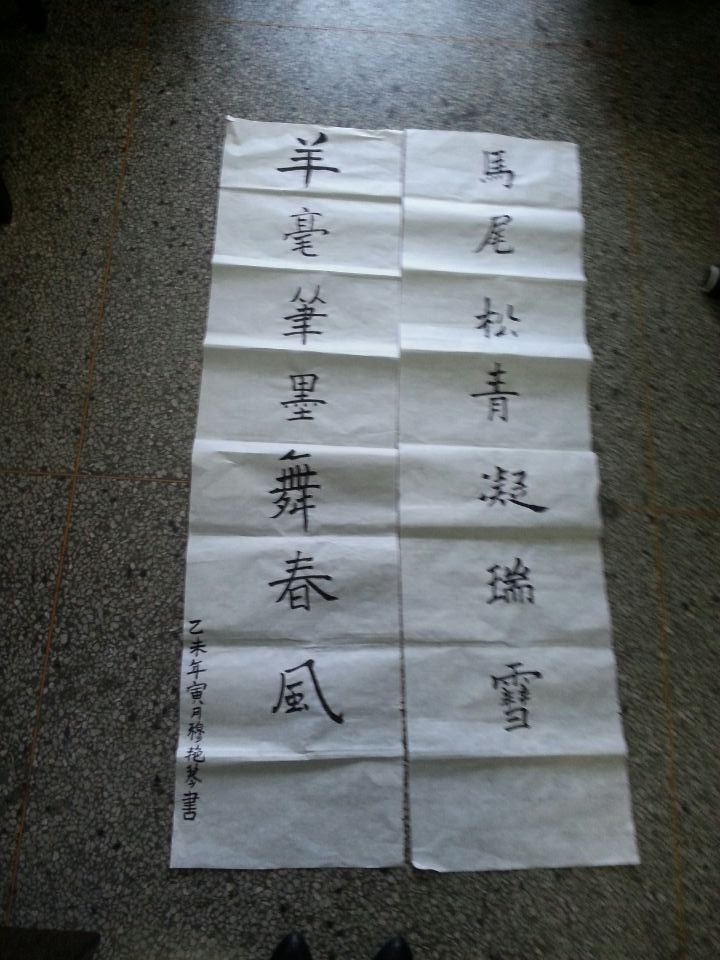 馬尾松青凝瑞雪
羊毫筆墨舞春風
乙未年寅月穆艳琴書